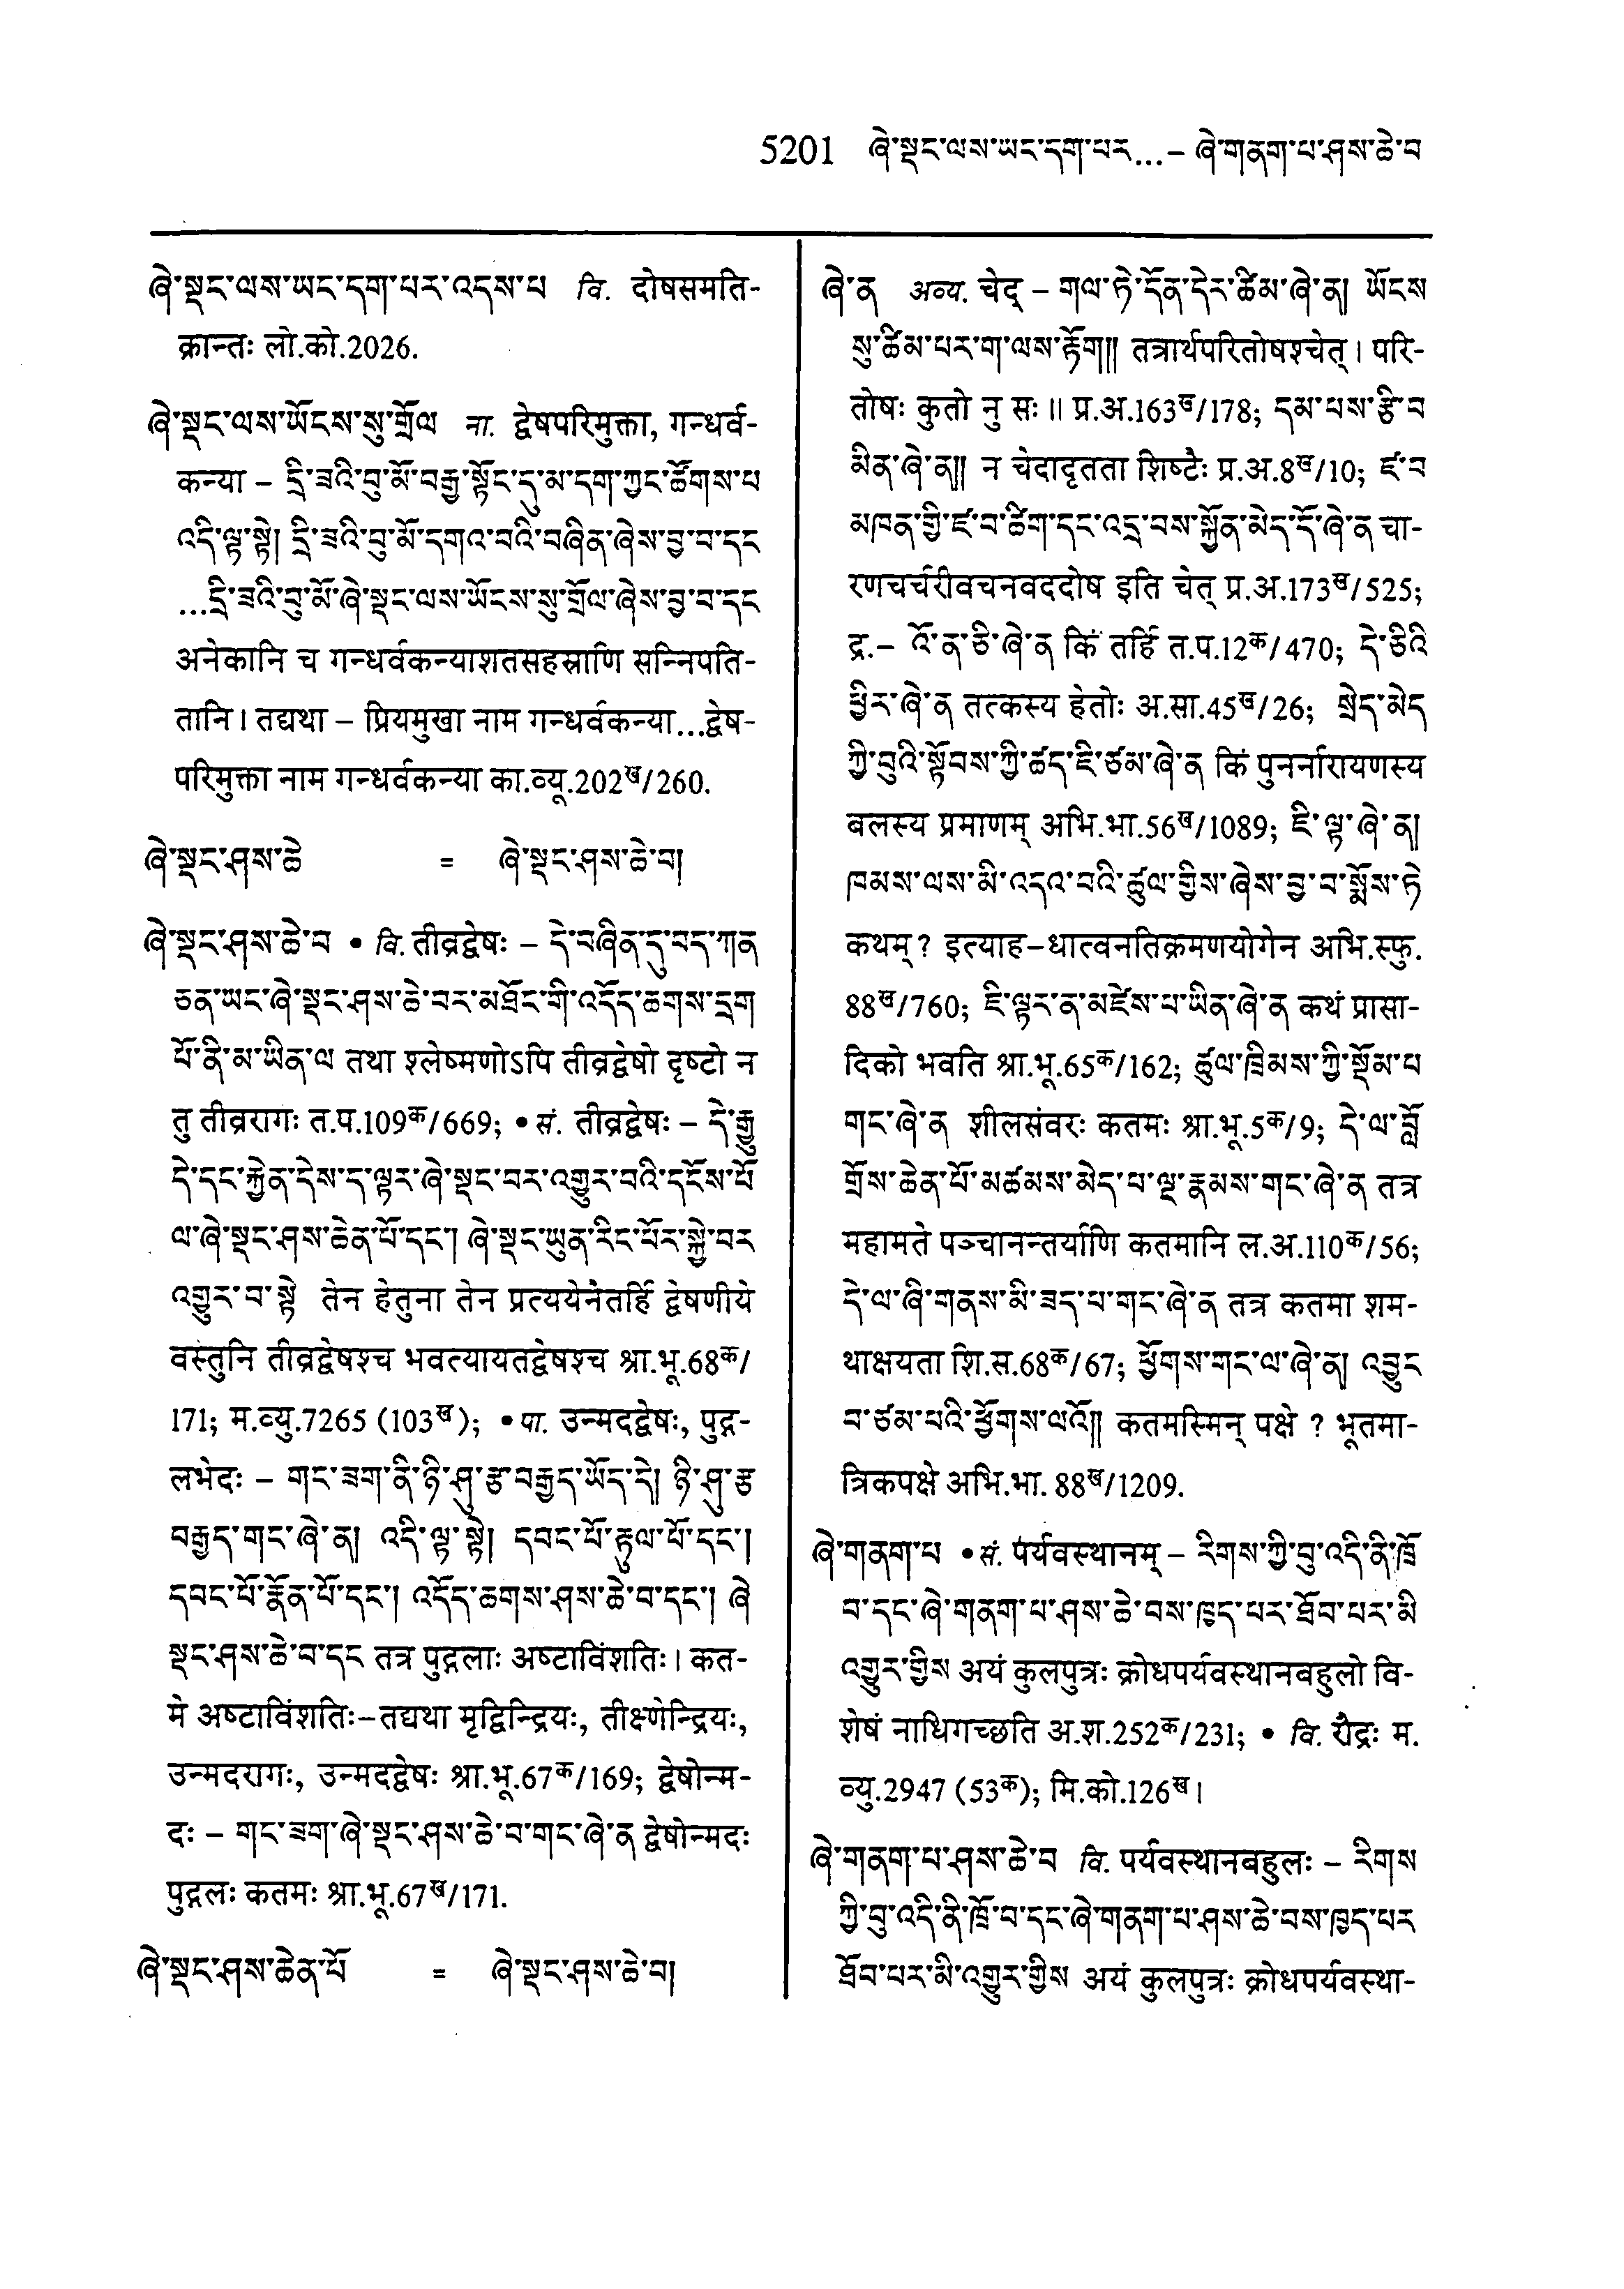 5201 ཞེ་སྡང་ལས་ཡང་དག་པར...– ཞེ་གནག་པ་ཤས་ཆེ་བ
ཞེ་སྡང་ལས་ཡང་དག་པར་འདས་པ वि. दोषसमति-
क्रान्तः लो.को.2026.
ཞེ་སྡང་ལས་ཡོངས་སུ་གྲོལ ना. द्वेषपरिमुक्ता, गन्धर्व-
कन्या – དྲི་ཟའི་བུ་མོ་བརྒྱ་སྟོང་དུ་མ་དག་ཀྱང་ཚོགས་པ
འདི་ལྟ་སྟེ། དྲི་ཟའི་བུ་མོ་དགའ་བའི་བཞིན་ཞེས་བྱ་བ་དང
...དྲི་ཟའི་བུ་མོ་ཞེ་སྡང་ལས་ཡོངས་སུ་གྲོལ་ཞེས་བྱ་བ་དང
अनेकानि च गन्धर्वकन्याशतसहस्राणि सन्निपति-
तानि। तद्यथा – प्रियमुखा नाम गन्धर्वकन्या...द्वेष-
परिमुक्ता नाम गन्धर्वकन्या का.व्यू.202ख/260.
ཞེ་སྡང་ཤས་ཆེ = ཞེ་སྡང་ཤས་ཆེ་བ།
ཞེ་སྡང་ཤས་ཆེ་བ • वि. तीव्रद्वेषः – དེ་བཞིན་དུ་བད་ཀན
ཅན་ཡང་ཞེ་སྡང་ཤས་ཆེ་བར་མཐོང་གི་འདོད་ཆགས་དྲག
པོ་ནི་མ་ཡིན་ལ तथा श्लेष्मणोऽपि तीव्रद्वेषो दृष्टो न
तु तीव्ररागः त.प.109क/669; • सं. तीव्रद्वेषः – དེ་རྒྱུ
དེ་དང་རྐྱེན་དེས་ད་ལྟར་ཞེ་སྡང་བར་འགྱུར་བའི་དངོས་པོ
ལ་ཞེ་སྡང་ཤས་ཆེན་པོ་དང་། ཞེ་སྡང་ཡུན་རིང་པོར་སྐྱེ་བར
འགྱུར་བ་སྟེ तेन हेतुना तेन प्रत्ययेनैतर्हि द्वेषणीये
वस्तुनि तीव्रद्वेषश्च भवत्यायतद्वेषश्च श्रा.भू.68क/
171; म.व्यु.7265 (103ख); • पा. उन्मदद्वेषः, पुद्ग-
लभेदः – གང་ཟག་ནི་ཉི་ཤུ་རྩ་བརྒྱད་ཡོད་དེ། ཉི་ཤུ་རྩ
བརྒྱད་གང་ཞེ་ན། འདི་ལྟ་སྟེ། དབང་པོ་རྟུལ་པོ་དང་།
དབང་པོ་རྣོན་པོ་དང་། འདོད་ཆགས་ཤས་ཆེ་བ་དང་། ཞེ
སྡང་ཤས་ཆེ་བ་དང तत्र पुद्गलाः अष्टाविंशतिः। कत-
मे अष्टाविंशतिः–तद्यथा मृद्विन्द्रियः, तीक्ष्णेन्द्रियः,
उन्मदरागः, उन्मदद्वेषः श्रा.भू.67क/169; द्वेषोन्म-
दः – གང་ཟག་ཞེ་སྡང་ཤས་ཆེ་བ་གང་ཞེ་ན द्वेषोन्मदः
पुद्गलः कतमः श्रा.भू.67ख/171.
ཞེ་སྡང་ཤས་ཆེན་པོ = ཞེ་སྡང་ཤས་ཆེ་བ།
ཞེ་ན अव्य. चेद् – གལ་ཏེ་དོན་དེར་ཚིམ་ཞེ་ན། ཡོངས
སུ་ཚིམ་པར་ག་ལས་རྟོག།། तत्रार्थपरितोषश्चेत्। परि-
तोषः कुतो नु सः॥ प्र.अ.163ख/178; དམ་པས་རྩི་བ
མིན་ཞེ་ན།། न चेदादृतता शिष्टैः प्र.अ.8ख/10; ཛ་བ
མཁན་གྱི་ཛ་བ་ཚིག་དང་འདྲ་བས་སྐྱོན་མེད་དོ་ཞེ་ན चा-
रणचर्चरीवचनवददोष इति चेत् प्र.अ.173ख/525;
द्र.– འོ་ན་ཅི་ཞེ་ན किं तर्हि त.प.12क/470; དེ་ཅིའི
ཕྱིར་ཞེ་ན तत्कस्य हेतोः अ.सा.45ख/26; སྲེད་མེད
ཀྱི་བུའི་སྟོབས་ཀྱི་ཚད་ཇི་ཙམ་ཞེ་ན किं पुनर्नारायणस्य
बलस्य प्रमाणम् अभि.भा.56ख/1089; ཇི་ལྟ་ཞེ་ན།
ཁམས་ལས་མི་འདའ་བའི་ཚུལ་གྱིས་ཞེས་བྱ་བ་སྨོས་ཏེ
कथम्? इत्याह–धात्वनतिक्रमणयोगेन अभि.स्फु.
88ख/760; ཇི་ལྟར་ན་མཛེས་པ་ཡིན་ཞེ་ན कथं प्रासा-
दिको भवति श्रा.भू.65क/162; ཚུལ་ཁྲིམས་ཀྱི་སྡོམ་པ
གང་ཞེ་ན शीलसंवरः कतमः श्रा.भू.5क/9; དེ་ལ་བློ
གྲོས་ཆེན་པོ་མཚམས་མེད་པ་ལྔ་རྣམས་གང་ཞེ་ན तत्र
महामते पञ्चानन्तर्याणि कतमानि ल.अ.110क/56;
དེ་ལ་ཞི་གནས་མི་ཟད་པ་གང་ཞེ་ན तत्र कतमा शम-
थाक्षयता शि.स.68क/67; ཕྱོགས་གང་ལ་ཞེ་ན། འབྱུང
བ་ཙམ་པའི་ཕྱོགས་ལའོ།། कतमस्मिन् पक्षे ? भूतमा-
त्रिकपक्षे अभि.भा. 88ख/1209.
ཞེ་གནག་པ • सं. पर्यवस्थानम् – རིགས་ཀྱི་བུ་འདི་ནི་ཁྲོ
བ་དང་ཞེ་གནག་པ་ཤས་ཆེ་བས་ཁྱད་པར་ཐོབ་པར་མི
འགྱུར་གྱིས अयं कुलपुत्रः क्रोधपर्यवस्थानबहुलो वि-
शेषं नाधिगच्छति अ.श.252क/231; • वि. रौद्रः म.
व्यु.2947 (53क); मि.को.126ख।
ཞེ་གནག་པ་ཤས་ཆེ་བ वि. पर्यवस्थानबहुलः – རིགས
ཀྱི་བུ་འདི་ནི་ཁྲོ་བ་དང་ཞེ་གནག་པ་ཤས་ཆེ་བས་ཁྱད་པར
ཐོབ་པར་མི་འགྱུར་གྱིས अयं कुलपुत्रः क्रोधपर्यवस्था-